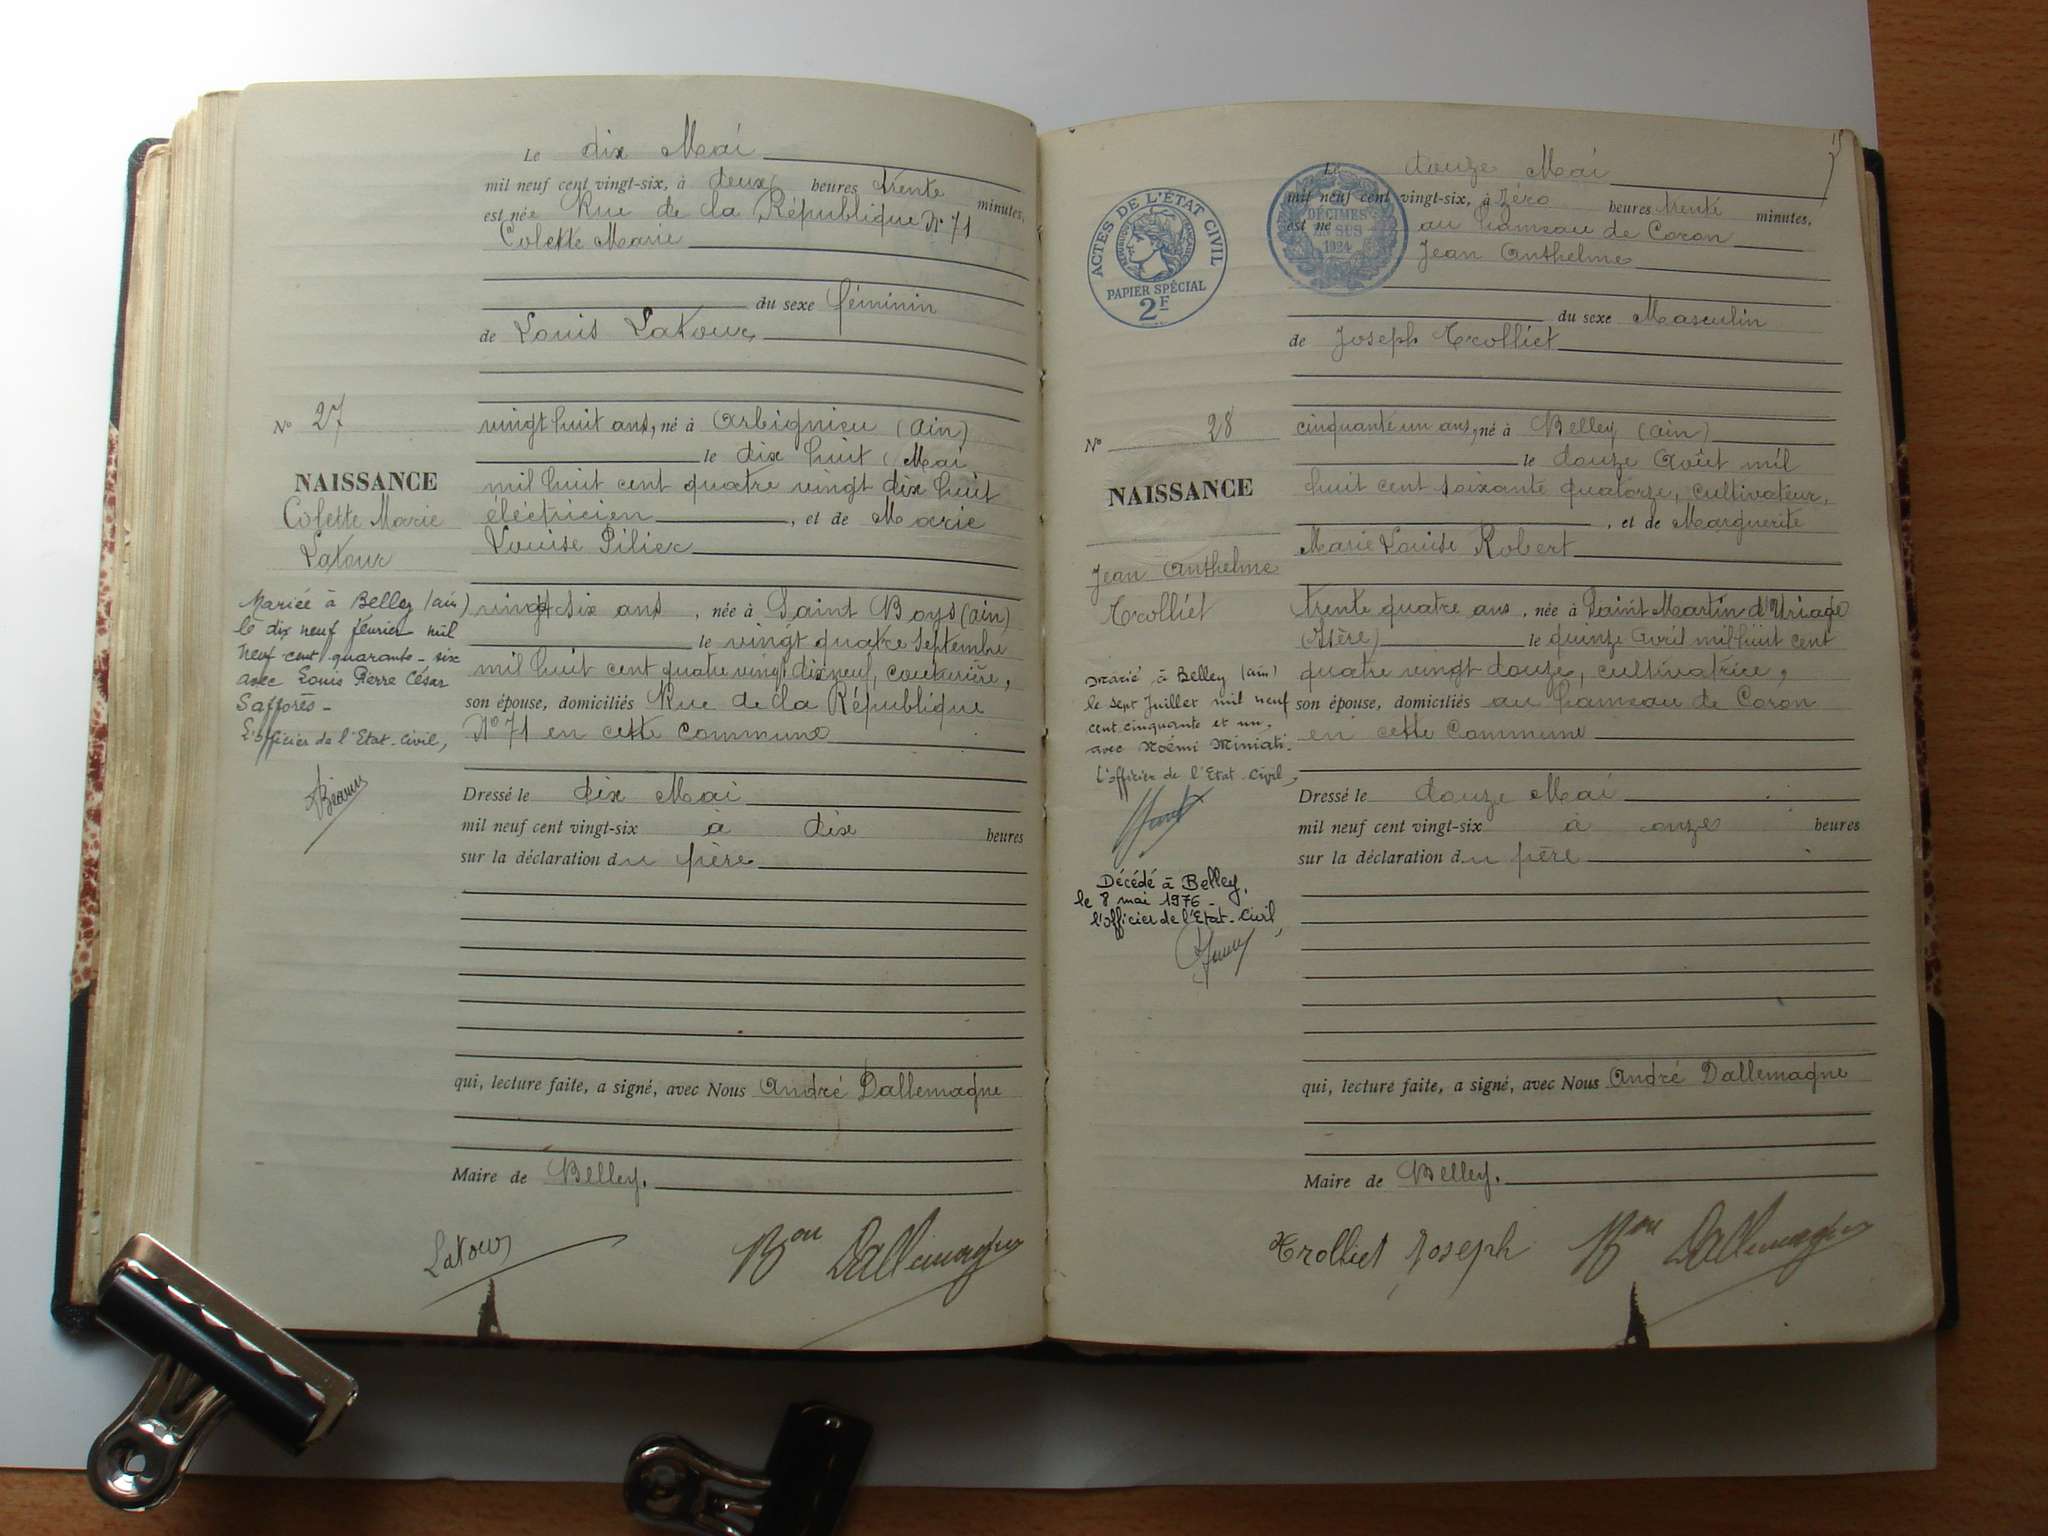 Le dix Mai
mil neuf cent vingt-six, à deux heures trente minutes,
est née Rue de la République N° 71
Colette Marie
du sexe féminin
de Louis Latour
N° 27
vingt huit ans, né à Arbignieu (Ain)
le dix huit Mai
NAISSANCE
mil huit cent quatre vingt dix huit
Colette Marie
électricien, et de Marie
Latour
Louise Pilier
Mariée à Belley (ain)
le dix neuf février mil
neuf cent quarante-six
avec Louis Pierre César
Safforès-
L'officier de l'Etat-Civil,
vingt six ans, née à Saint Boys (Ain)
le vingt quatre Septembre
mil huit cent quatre vingt dix neuf, couturière,
son épouse, domiciliés Rue de la République
N° 71 en cette commune
Dressé le dix Mai
mil neuf cent vingt-six à dix heures
sur la déclaration du père
qui, lecture faite, a signé, avec Nous André Dallemagne
Maire de Belley.
Latour Bon Dallemagne
15
ACTES DE L'ÉTAT CIVIL
RÉPUBLIQUE FRANÇAISE
PAPIER SPÉCIAL
2F
DÉCIMES
EN SUS
1924
Le douze Mai
mil neuf cent vingt-six, à Zéro heures trente minutes,
est né au hameau de Coron
Jean Anthelme
du sexe Masculin
de Joseph Trolliet
N° 28
cinquante un ans, né à Belley (Ain)
le douze Août mil
NAISSANCE
huit cent soixante quatorze, cultivateur,
, et de Marguerite
Marie Louise Robert
Jean Anthelme
Trolliet
trente quatre ans, née à Saint Martin d'Uriage
(Isère) le quinze Avril mil huit cent
quatre vingt douze, cultivatrice,
son épouse, domiciliés au hameau de Coron
en cette Commune
Marié à Belley (ain)
le sept Juillet mil neuf
cent cinquante et un,
avec Noémi Miniati.
L'officier de l'Etat Civil,
Décédé à Belley,
le 8 mai 1976-
l'officier de l'Etat-Civil,
Dressé le douze Mai
mil neuf cent vingt-six à onze heures
sur la déclaration du père
qui, lecture faite, a signé, avec Nous André Dallemagne
Maire de Belley.
Trolliet Joseph Bon Dallemagne